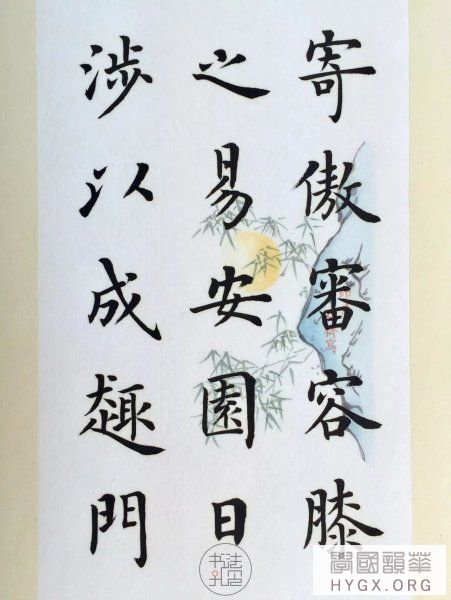 寄傲審容膝
之易安園日
涉以成趣門
書法
華韻國學
HYGX.ORG